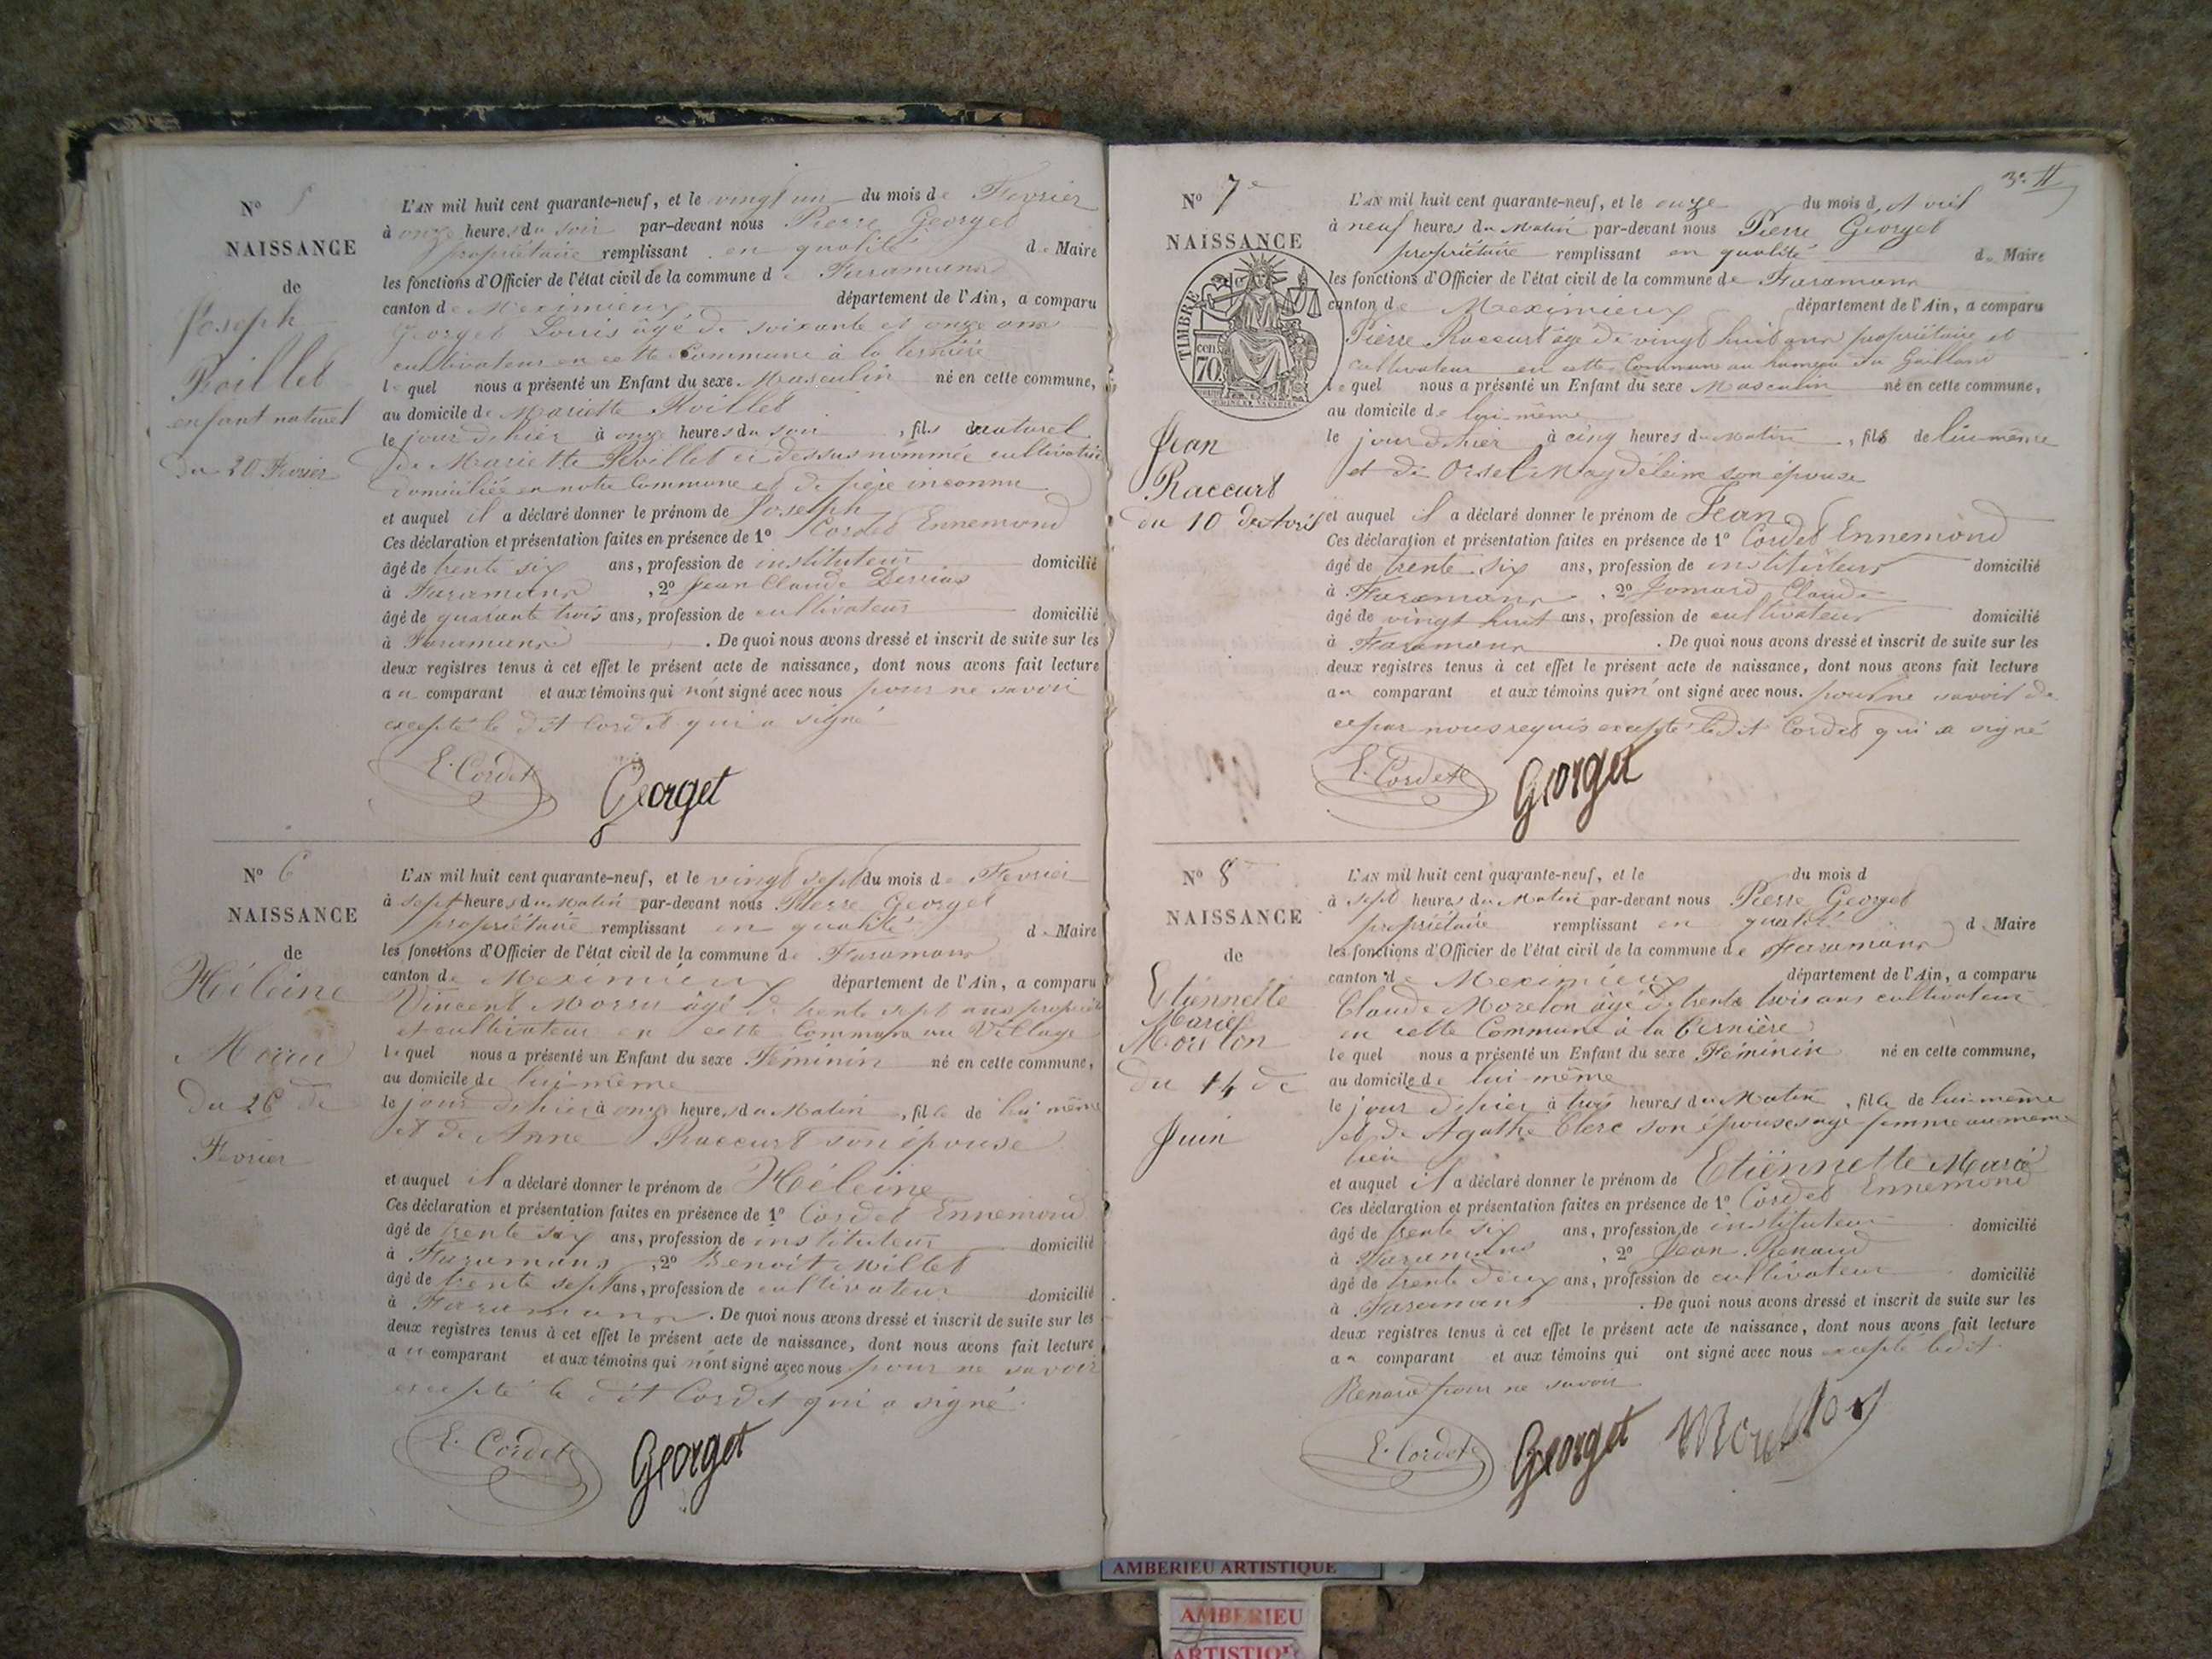 N° 5
NAISSANCE
de
Joseph
Roillet
enfant naturel
du 20 Fevrier
L'AN mil huit cent quarante-neuf, et le vingt un du mois de Fevrier
à onze heures du soir par-devant nous Pierre Georget
propriétaire remplissant en qualité de Maire
les fonctions d'Officier de l'état civil de la commune de Faramans
canton de Meximieux département de l'Ain, a comparu
Georget Louis agé de soixante et onze ans
cultivateur en cette Commune à la
lequel nous a présenté un Enfant du sexe Masculin né en cette commune,
au domicile de Mariette Roillet
le jour d'hier à onze heures du soir, fils naturel
de Mariette Roillet ci dessus nommée cultivatrice
domiciliée en notre Commune et de père inconnu
et auquel il a déclaré donner le prénom de Joseph
Ces déclaration et présentation faites en présence de 1° Cordet Ennemond
âgé de trente six ans, profession de instituteur domicilié
à Faramans, 2° Jean Claude
âgé de quarante trois ans, profession de cultivateur domicilié
à Faramans. De quoi nous avons dressé et inscrit de suite sur les
deux registres tenus à cet effet le présent acte de naissance, dont nous avons fait lecture
au comparant et aux témoins qui n'ont signé avec nous pour ne savoir
excepté le dit Cordet qui a signé
E. Cordet Georget
N° 6
NAISSANCE
de
Héleine
Morru
du 26 de
Fevrier
L'AN mil huit cent quarante-neuf, et le vingt sept du mois de Fevrier
à sept heures du Matin par-devant nous Pierre Georget
propriétaire remplissant en qualité de Maire
les fonctions d'Officier de l'état civil de la commune de Faramans
canton de Meximieux département de l'Ain, a comparu
Vincent Morru agé de trente sept ans propriét
et cultivateur en cette Commune au Village
lequel nous a présenté un Enfant du sexe Féminin né en cette commune,
au domicile de lui-même
le jour d'hier à onze heures du Matin, fille de lui même
et de Anne Raccurt son épouse
et auquel il a déclaré donner le prénom de Héleine
Ces déclaration et présentation faites en présence de 1° Cordet Ennemond
âgé de trente six ans, profession de instituteur domicilié
à Faramans, 2° Benoît Millet
âgé de trente sept ans, profession de cultivateur domicilié
à Faramans. De quoi nous avons dressé et inscrit de suite sur les
deux registres tenus à cet effet le présent acte de naissance, dont nous avons fait lecture
au comparant et aux témoins qui n'ont signé avec nous pour ne savoir
excepté le dit Cordet qui a signé
E. Cordet Georget
N° 7
NAISSANCE
TIMBRE
70 cen
Jean
Raccurt
du 10 de Avril
L'AN mil huit cent quarante-neuf, et le onze du mois d'Avril
à neuf heures du Matin par-devant nous Pierre Georget
propriétaire remplissant en qualité de Maire
les fonctions d'Officier de l'état civil de la commune de Faramans
canton de Meximieux département de l'Ain, a comparu
Pierre Raccurt âgé de vingt huit ans propriétaire et
cultivateur en cette Commune au hameau du Gaillard
lequel nous a présenté un Enfant du sexe Masculin né en cette commune,
au domicile de lui même
le jour d'hier à cinq heures du matin, fils de lui-même
et de Orset Magdéleine son épouse
et auquel il a déclaré donner le prénom de Jean
Ces déclaration et présentation faites en présence de 1° Cordet Ennemond
âgé de trente six ans, profession de instituteur domicilié
à Faramans, 2° Jomard Claude
âgé de vingt huit ans, profession de cultivateur domicilié
à Faramans. De quoi nous avons dressé et inscrit de suite sur les
deux registres tenus à cet effet le présent acte de naissance, dont nous avons fait lecture
au comparant et aux témoins qui n'ont signé avec nous. pour ne savoir de
ce par nous requis excepté le dit Cordet qui a signé
E. Cordet Georget
N° 8
NAISSANCE
de
Etiennette
Marie
Morelon
du 14 de
Juin
L'AN mil huit cent quarante-neuf, et le du mois d
à sept heures du Matin par-devant nous Pierre Georget
propriétaire remplissant en qualité de Maire
les fonctions d'Officier de l'état civil de la commune de Faramans
canton de Meximieux département de l'Ain, a comparu
Claude Morelon âgé de trente trois ans cultivateur
en cette Commune à la Bernière
lequel nous a présenté un Enfant du sexe Féminin né en cette commune,
au domicile de lui-même
le jour d'hier à trois heures du Matin, fille de lui-même
et de Agathe Clerc son épouse sage femme au même
lieu
et auquel il a déclaré donner le prénom de Etiennette Marie
Ces déclaration et présentation faites en présence de 1° Cordet Ennemond
âgé de trente six ans, profession de instituteur domicilié
à Faramans, 2° Jean Renard
âgé de trente deux ans, profession de cultivateur domicilié
à Faramans. De quoi nous avons dressé et inscrit de suite sur les
deux registres tenus à cet effet le présent acte de naissance, dont nous avons fait lecture
au comparant et aux témoins qui ont signé avec nous excepté le dit
Renard pour ne savoir
E. Cordet Georget Morelon
AMBERIEU ARTISTIQUE
AMBERIEU
ARTISTIQUE